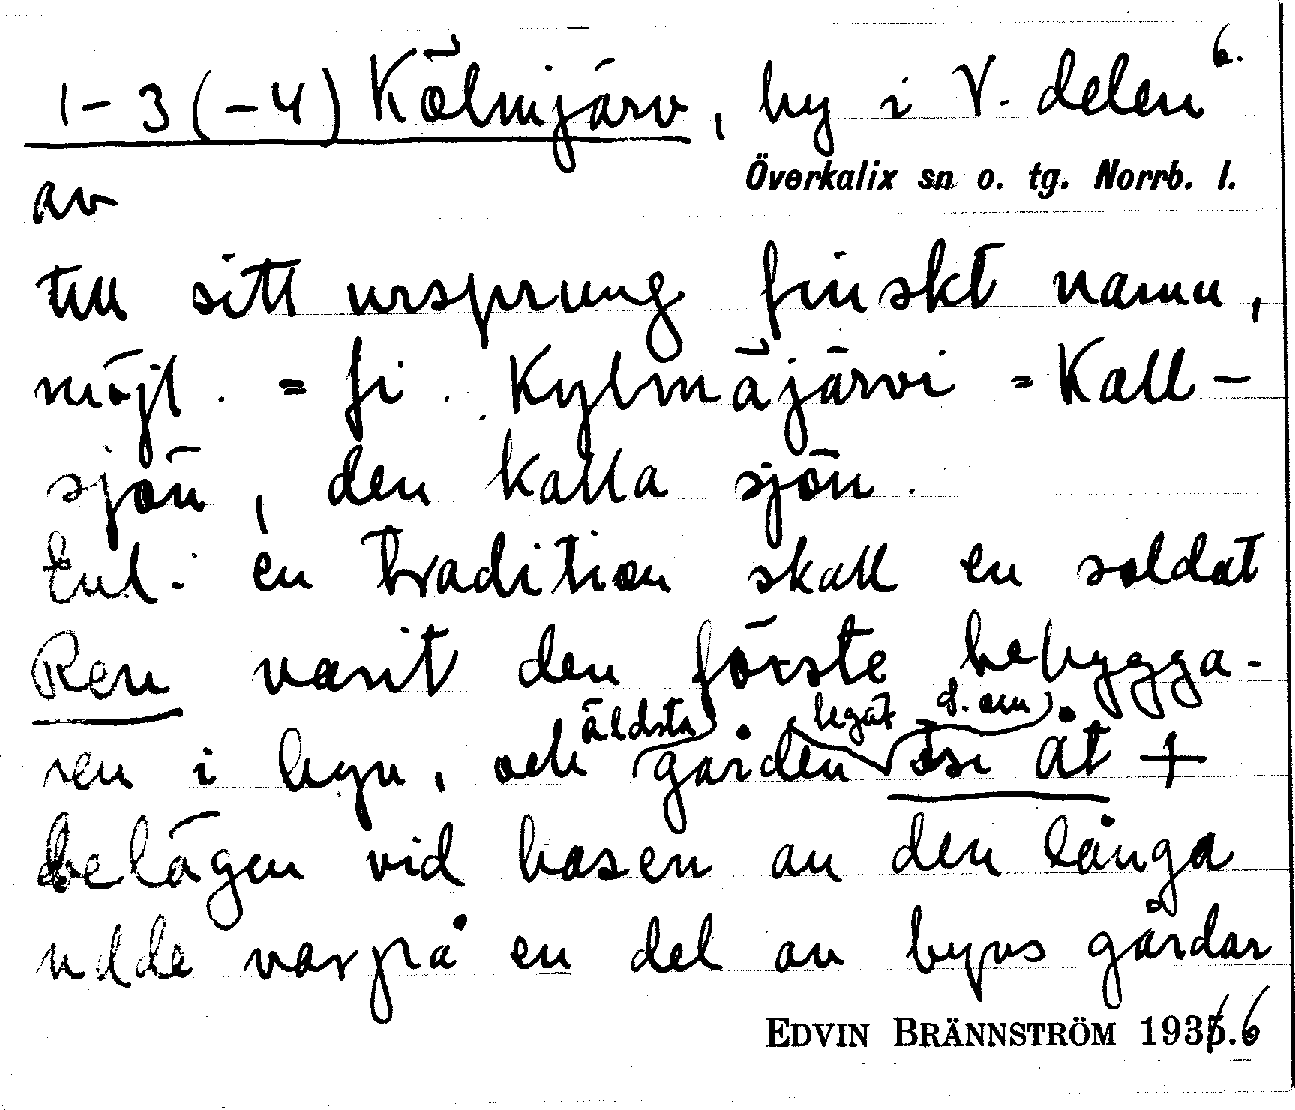 6.
1-3(-4) Kölmjärv, by i V. delen
Överkalix sn o. tg. Norrb. l.
av
till sitt ursprung finskt namn,
möjl. = fi. Kylmäjärvi = Kall-
sjön, den kalla sjön.
Enl. en tradition skall en soldat
Ren varit den förste bebygga-
äldsta legat d. om
ren i byn, och gården åt +
belägen vid basen av den långa
udde varpå en del av byns gårdar
EDVIN BRÄNNSTRÖM 1936.6